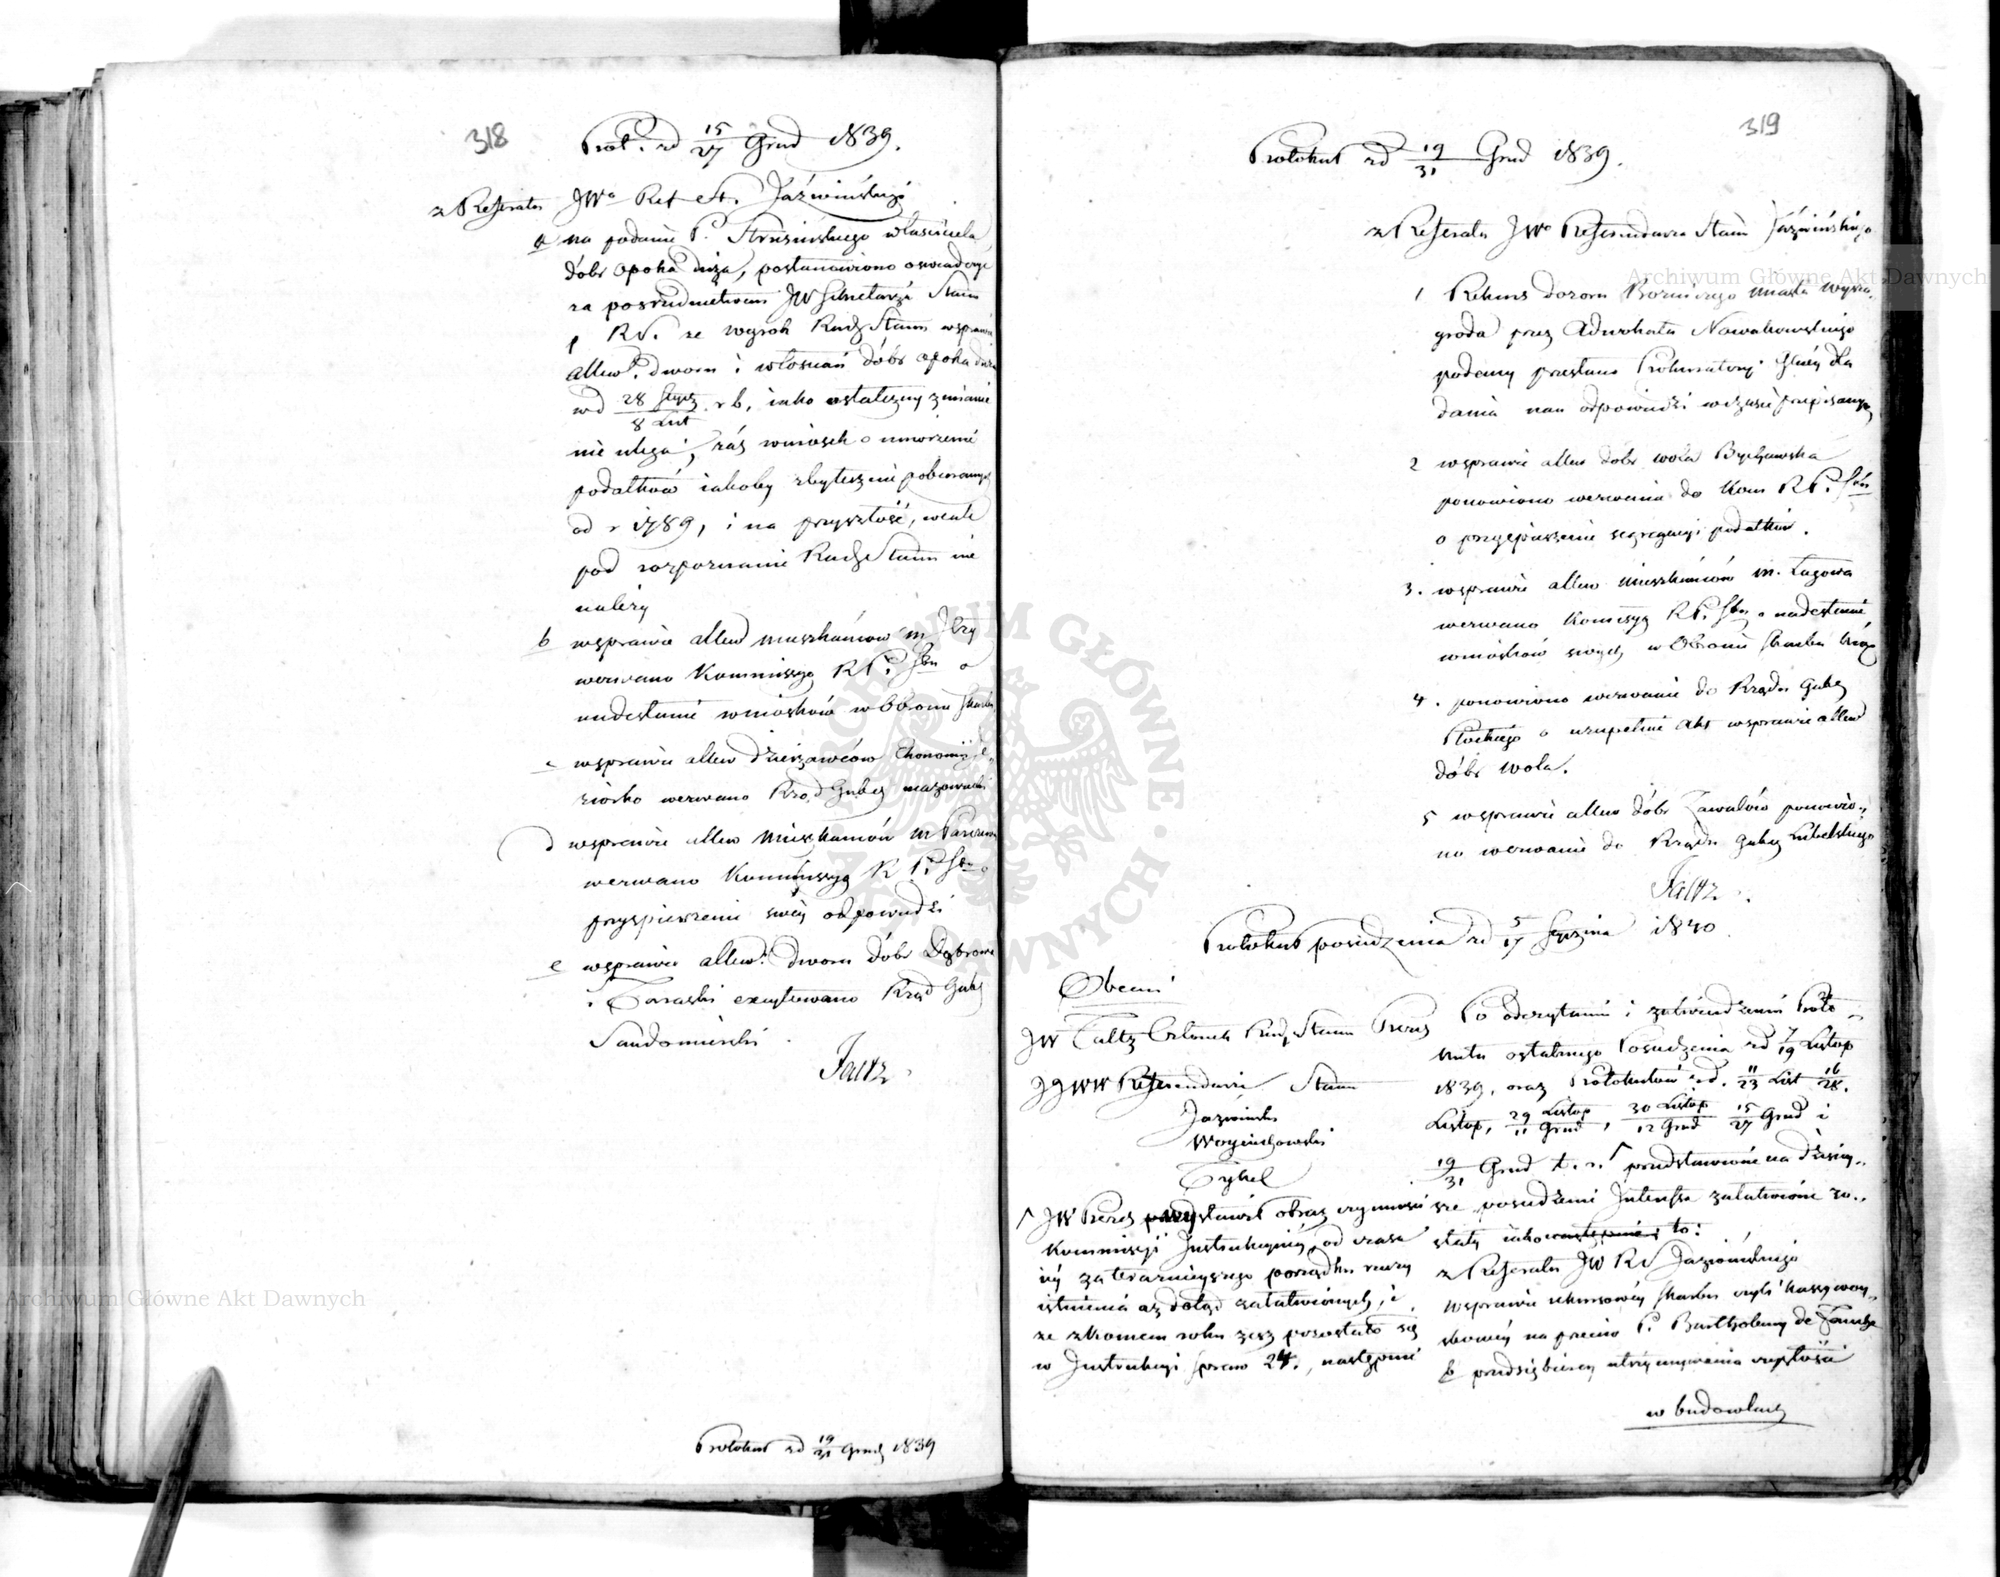 318
Prot. zd 15/27 Grud 1839.
z Referatu JWo Ref St. Jaźwińskiego
a na podanie P. Strusińskiego właściciela
dóbr Opoka duża, postanowiono oświadczyć
za pośrednictwem JW Sekretarza Stanu
RS. że wyrok Rady Stanu w sprawie
allew. dworu i włościan dóbr Opoka duża
w d 28 Stycz / 8 Lut r b, jako ostateczny zmianie
nie ulega, zaś wniosek o umorzenie
podatków jakoby zbytecznie pobieranych
od r 1789, i na przyszłość, wcale
pod rozpoznanie Rady Stanu nie
należy
b w sprawie allew mieszkańców m
wezwano Kommissyą R P. Sbu o
nadesłanie wniosków w Obronie Skarbu
c w sprawie allew dzierżawców Ekonomii
wezwano Rząd Guby mazowiecki
d w sprawie allew mieszkańców m Parczewa
wezwano Kommissyą R P. Sbu o
przyspieszenie swéy odpowiedzi
e w sprawie allew. dworu dóbr Dąbrowa
i Taraski excytowano Rząd Guby
Sandomierski.
Faltz
Protokuł zd 19/31 Grud 1839
319
Protokuł zd 19/31 Grud 1839.
z Referatu JWo Referendarza Stanu Jaźwińskiego
1 Rekurs dozoru Bożniczego miasta Wyszo-
grodu przez Adwokata Nowakowskiego
podany przesłano Prokuratoryi Głnéy dla
dania nań odpowiedzi w czasie przepisanym
2 w sprawie allew dóbr Wola Bychawska
ponowiono wezwanie do Kom R P. Sbu
o przyspieszenie segregacyi podatków.
3. w sprawie allew mieszkańców m. Łagowa
wezwano Komissyą R P. Sbu o nadesłanie
wniosków swych w Obronie Skarbu
4. ponowiono wezwanie do Rządu Guby
Płockiego o uzupełnie akt w sprawie allew
dóbr Wola.
5 w sprawie allew dóbr Zawałów ponowio-
no wezwanie do Rządu Guby Lubelskiego
Faltz
Protokuł posiedzenia zd 5/17 Stycznia 1840
Obecni
JW Faltz Członek Rady Stanu Prezes
JJWW Referendarze Stanu
Jaźwiński
Woyciechowski
Tykel
JW Prezes przedstawił obraz czynności
Kommissyi Instrukcyinéy od czasu
iéy za teraznieyszego porządku rzeczy
istnienia aż dotąd załatwionych, i
że z końcem roku zesz pozostało się
w Instrukcyi spraw 24., następnie
Po odczytaniu i zatwierdzeniu Proto-
kułu ostatniego Posiedzenia zd 7/19 Listop
1839. oraz Protokułów zd. 11/23 List 16/28.
Listop, 29 Listop / 11 Grud, 30 Listop / 12 Grud 15/27 Grud i
19/31 Grud t. r. przedstawione na dzisiey-
sze posiedzenie Interessa załatwione zo-
stały jako następnie to:
z Referatu JW RS Jaźwińskiego
w sprawie rekursowéy Skarbu czyli kassy woy-
skowéy na przeciw P. Barthelemy de
b przedsiębiercy utrzymywania czystości
w budowlach
Archiwum Główne Akt Dawnych
Archiwum Główne Akt Dawnych
ARCHIWUM GŁÓWNE AKT DAWNYCH